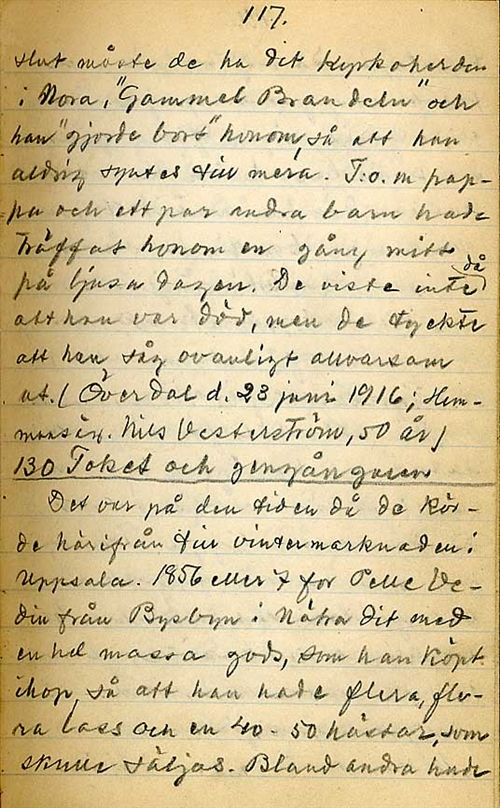 117.
slut måste de ha dit kyrkoherden
i Nora, "Gammel Brandeln" och
han "gjorde bort" honom, så att han
aldrig syntes till mera. T.o.m pap-
pa och ett par andra barn hade
träffat honom en gång mitt
på ljusa dagen. De viste inte då
att han var död, men de tyckte
att han såg ovanligt allvarsam
ut. (Överdal d. 23 juni 1916; Hem-
mansäg. Nils Vesterström, 50 år)
130 Toket och gengångaren
Det var på den tiden då de kör-
de härifrån till vintermarknaden i
Uppsala. 1856 eller 7 for Pelle Ve-
din från Bysbyn i Nätra dit med
en hel massa gods, som han köpt
ihop, så att han hade flera, fle-
ra lass och en 40-50 hästar, som
skulle säljas. Bland andra hade